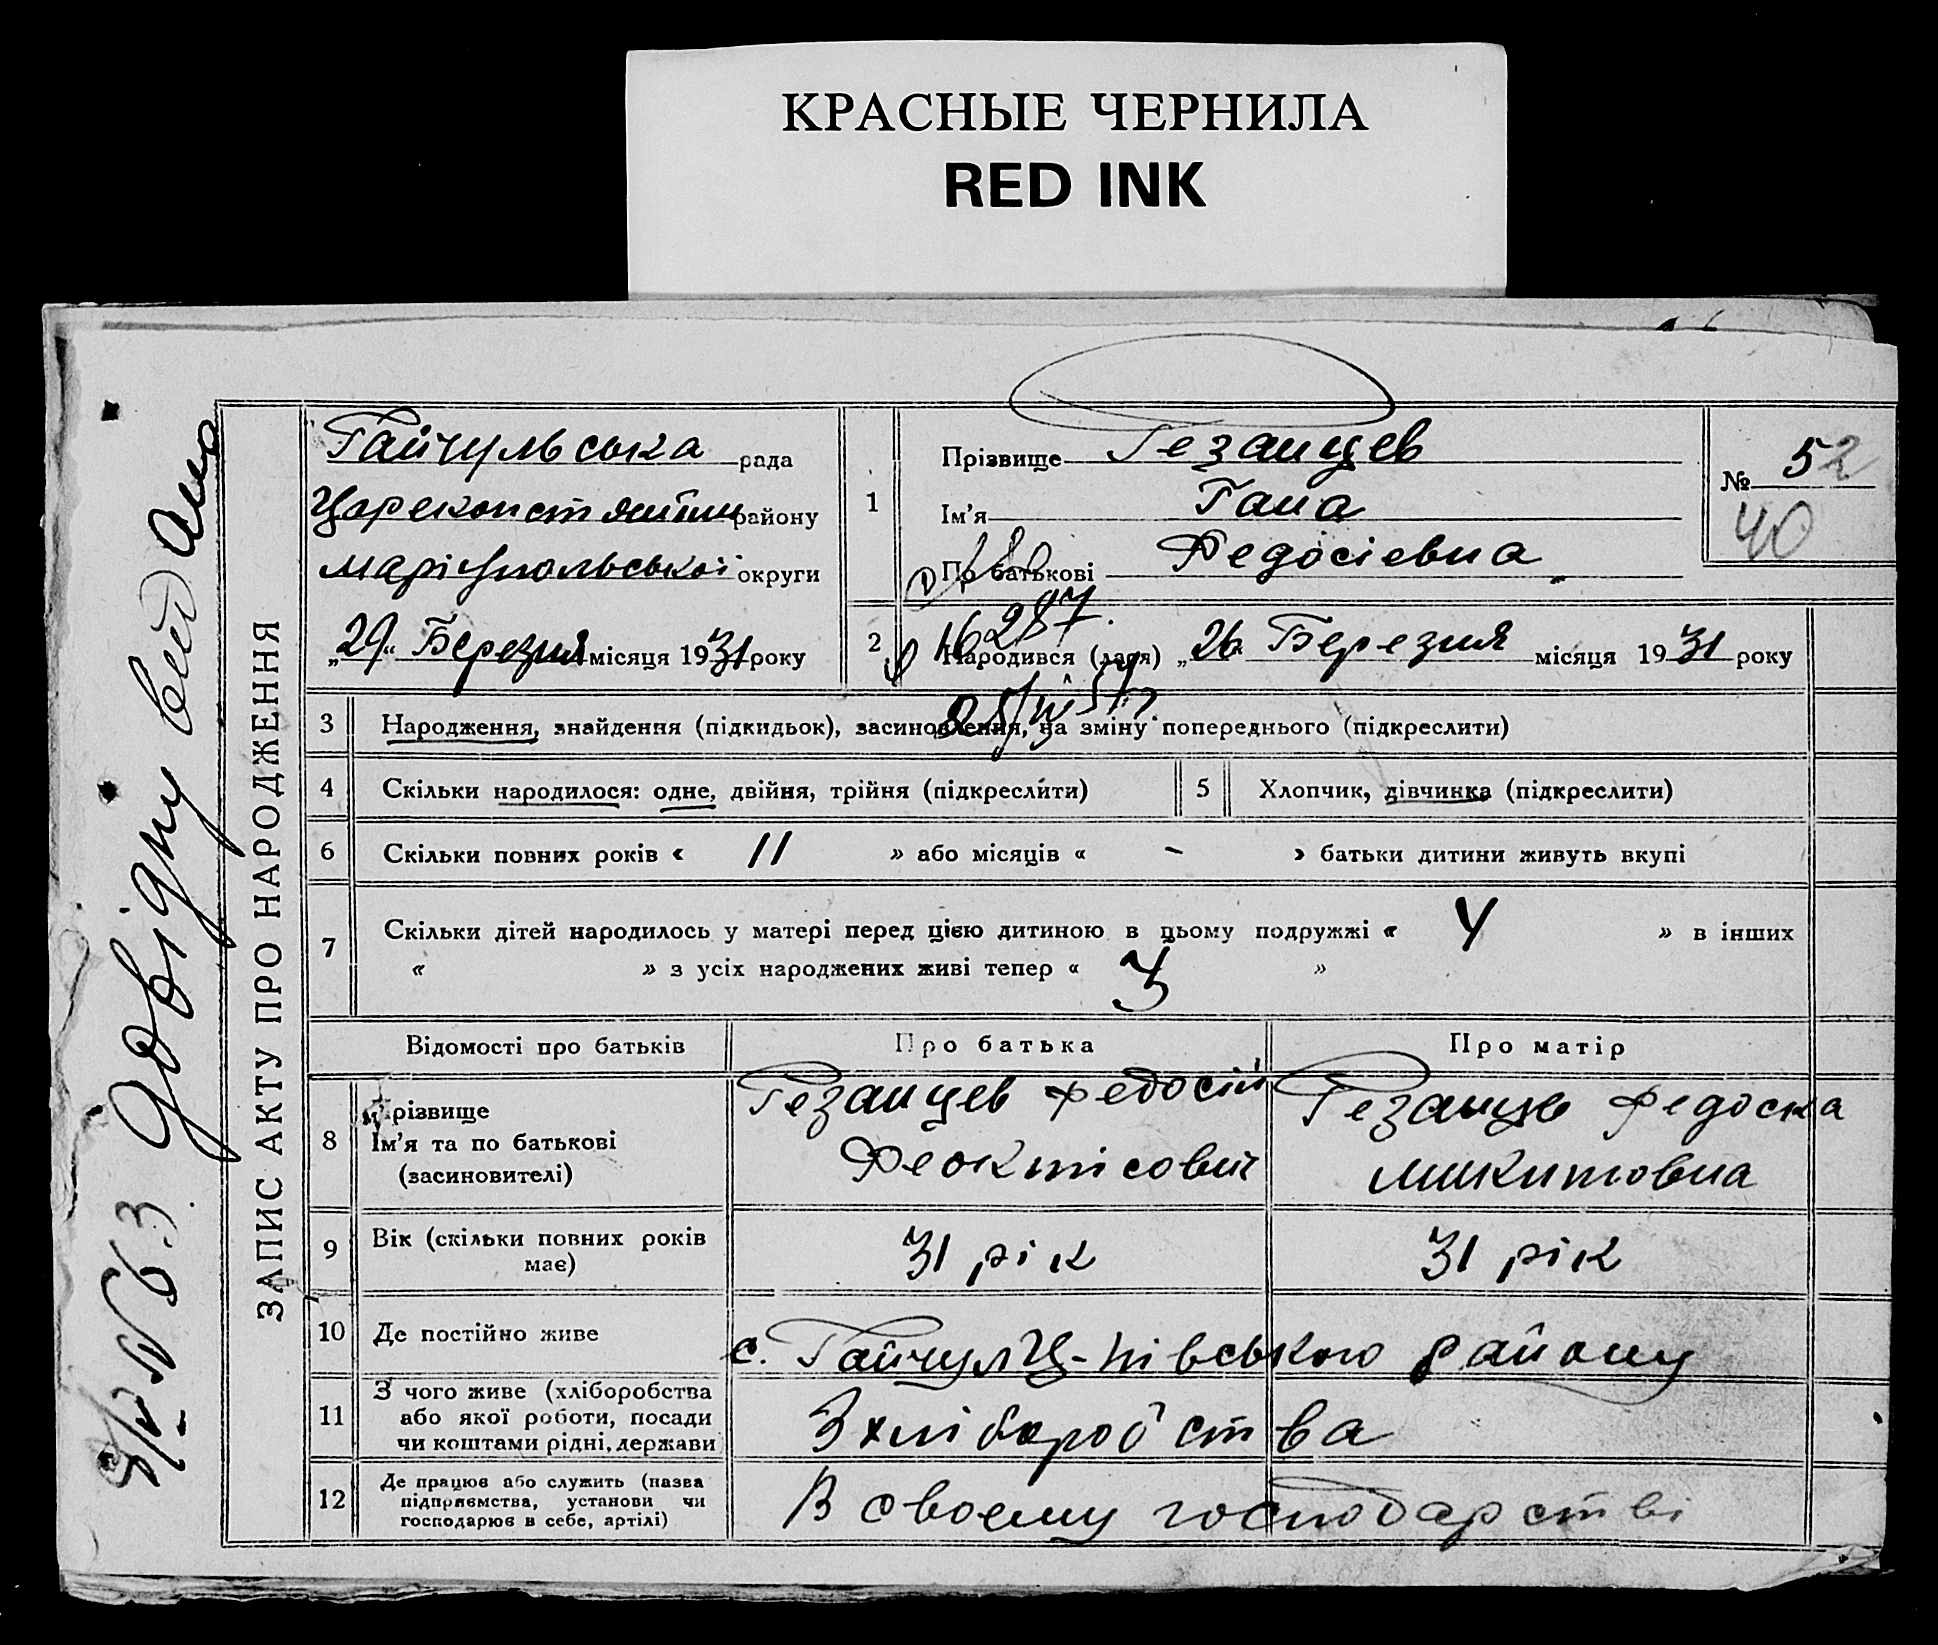 КРАСНЫЕ ЧЕРНИЛА
RED INK
ЗАПИС АКТУ ПРО НАРОДЖЕННЯ
Довідку видано
Гайчульська рада
Цареконстянтин району
маріупольської округи
„29“ Березня місяця 1931 року
1
Прізвище Гезанцев
Ім'я Гана
По батькові Федосіевна
№ 52
40
2
16287
Народився (лася) „26“ Березня місяця 1931 року
3 Народження, знайдення (підкидьок), засиновлення, на зміну попереднього (підкреслити)
4 Скільки народилося: одне, двійня, трійня (підкреслити)
5 Хлопчик, дівчинка (підкреслити)
6 Скільки повних років « 11 » або місяців « - » батьки дитини живуть вкупі
7 Скільки дітей народилось у матері перед цією дитиною в цьому подружжі « 4 » в інших
« » з усіх народжених живі тепер « 3 »
Відомості про батьків Про батька Про матір
8 Прізвище
Ім'я та по батькові
(засиновителі)
Гезанцев Федосій
Феоктісович
Гезанцев Федоска
Микитовна
9 Вік (скільки повних років
має)
31 рік 31 рік
10 Де постійно живе с. Гайчул Ц-нівського району
11 З чого живе (хліборобства
або якої роботи, посади
чи коштами рідні, держави
З хліборобства
12 Де працює або служить (назва
підприємства, установи чи
господарює в себе, артілі)
В своему господарстві